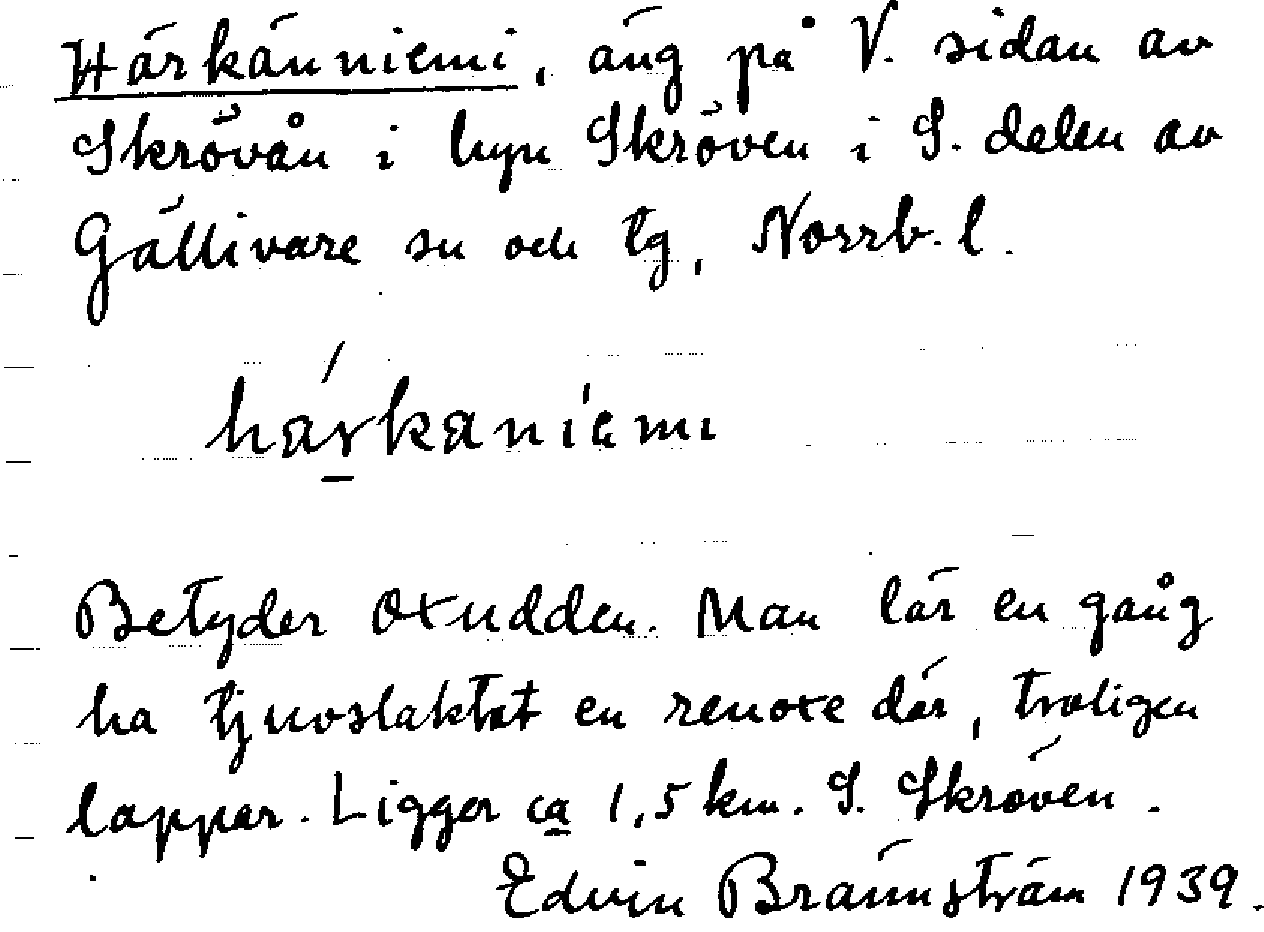 Härkänniemi, äng på V. sidan av
Skrövån i byn Skröven i S. delen av
Gällivare sn och tg, Norrb. l.
härkäniemi
Betyder Oxudden. Man lär en gång
ha tjuvslaktat en renoxe där, troligen
lappar. Ligger ca 1,5 km. S. Skröven.
Edvin Brännström 1939.